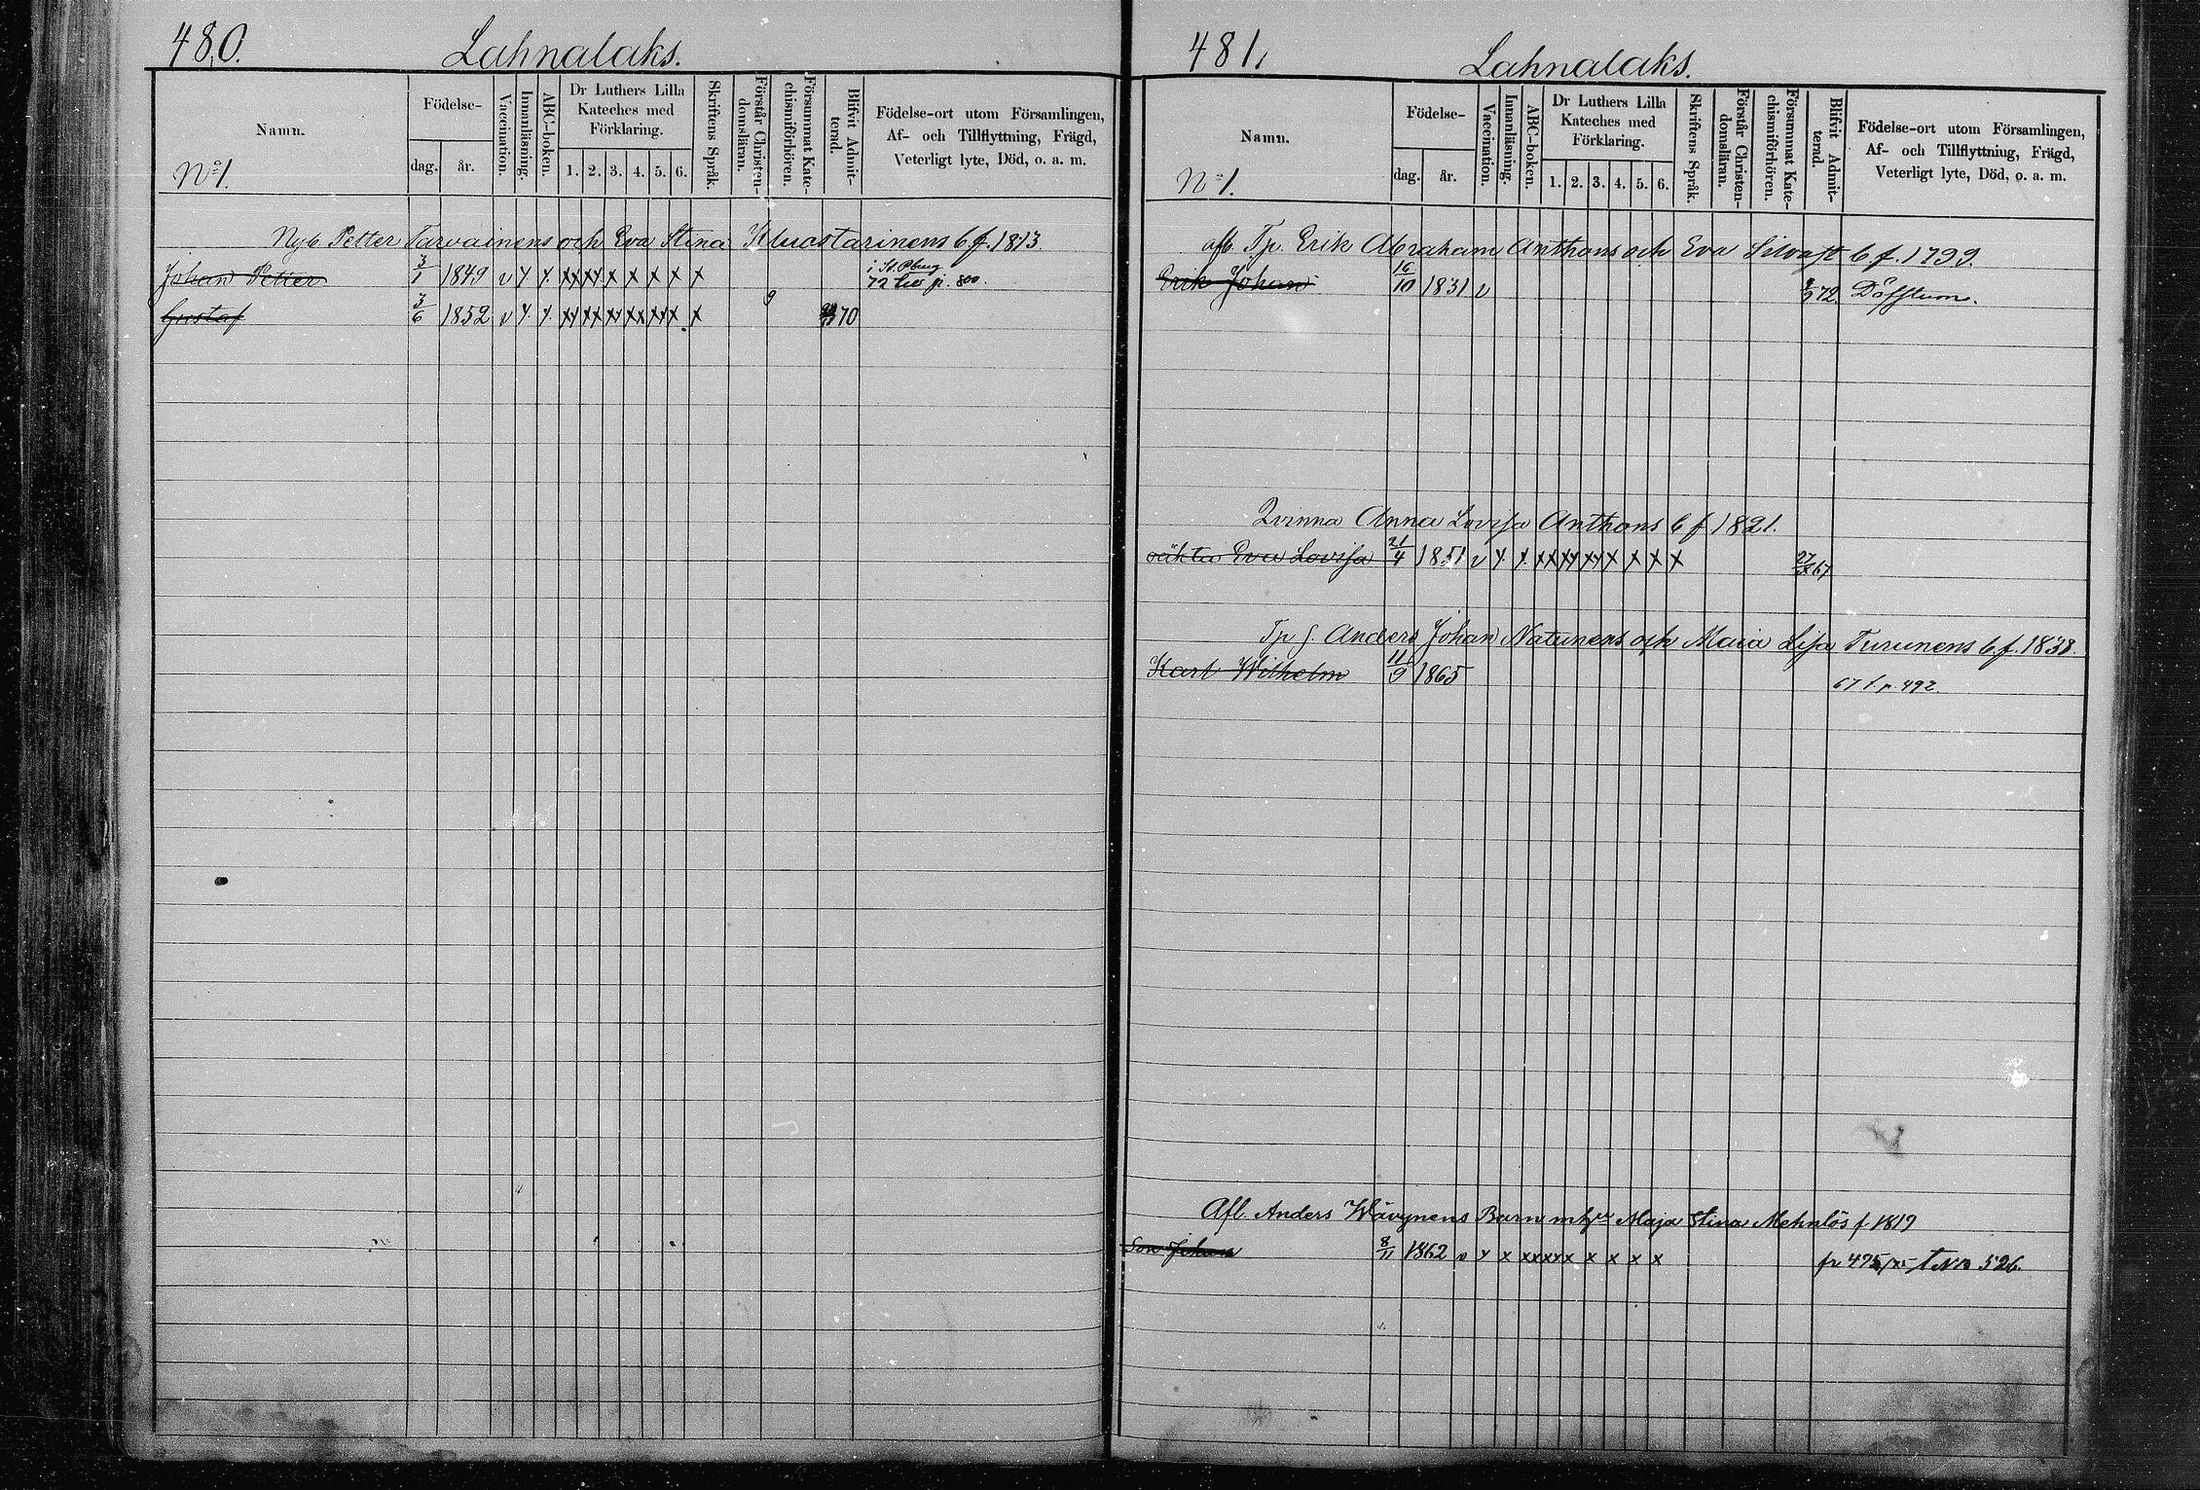 480.
Lahnalaks.
Namn.
Nº 1.
Födelse-
dag. år.
Vaccination.
Innanläsning.
ABC-boken.
Dr Luthers Lilla Kateches med Förklaring.
1. 2. 3. 4. 5. 6.
Skriftens Språk.
Förstår Christendomsläran.
Försummat Katechismiförhören.
Blifvit Admitterad.
Födelse-ort utom Församlingen,
Af- och Tillflyttning, Frägd,
Veterligt lyte, Död, o. a. m.
Nyb. Petter Tarvainens och Eva Stina Kluostarinens b f. 1813
i St. Pburg
Johan Petter 3/1 1849 v y y. xx xy x x x x x 72 p. 800.
Gustaf 3/6 1852 v y. y. x 70
481.
Lahnalaks.
Namn.
Nº 1.
Födelse-
dag. år.
Vaccination.
Innanläsning.
ABC-boken.
Dr Luthers Lilla Kateches med Förklaring.
1. 2. 3. 4. 5. 6.
Skriftens Språk.
Förstår Christendomsläran.
Försummat Katechismiförhören.
Blifvit Admitterad.
Födelse-ort utom Församlingen,
Af- och Tillflyttning, Frägd,
Veterligt lyte, Död, o. a. m.
afl. Tp. Erik Abraham Anthons och Eva Silvast b f. 1799.
Erik Johan 16/10 1831 v 72 Döfstum.
Qvinna Anna Lovisa Anthons b f 1821.
oäkta Eva Lovisa 21/4 1851 v y. y. xx xy xy x x x x 67
Tp f Anders Johan Natunens och Maia Lisa Turunens b f. 1838.
Karl Wilhelm 11/9 1865 67 t. p. 492
Afl. Anders Wävynens Barn Maja Stina Mehnlös f 1819
Son Johan 8/11 1862 v y x xx xx x x x x x fr 475 526.